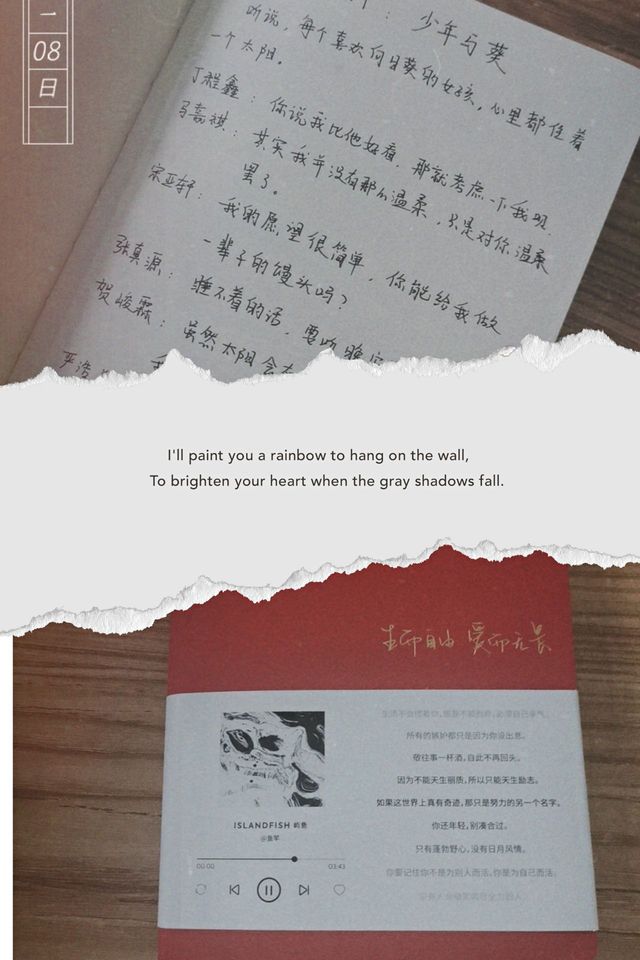 一
08
日
：少年与葵
听说，每个喜欢向日葵的女孩，心里都住着
一个太阳。
丁程鑫：你说我比他好看，那就考虑一下我呗.
马嘉祺：其实我并没有那么温柔，只是对你温柔
罢了。
宋亚轩：我的愿望很简单，你能给我做
一辈子的馒头吗？
张真源：睡不着的话，要听晚安
贺峻霖：虽然太阳会在
严浩
I'll paint you a rainbow to hang on the wall,
To brighten your heart when the gray shadows fall.
生而自由 爱而无畏
ISLANDFISH 屿鱼
00:00
03:43
生活不会惯着你，
所有的嫉妒都只是因为你没出息。
敬往事一杯酒，自此不再回头。
因为不能天生丽质，所以只能天生励志。
如果这世界上真有奇迹，那只是努力的另一个名字。
你还年轻，别凑合过。
只有蓬勃野心，没有日月风情。
你要记住你不是为别人而活，你是为自己而活。